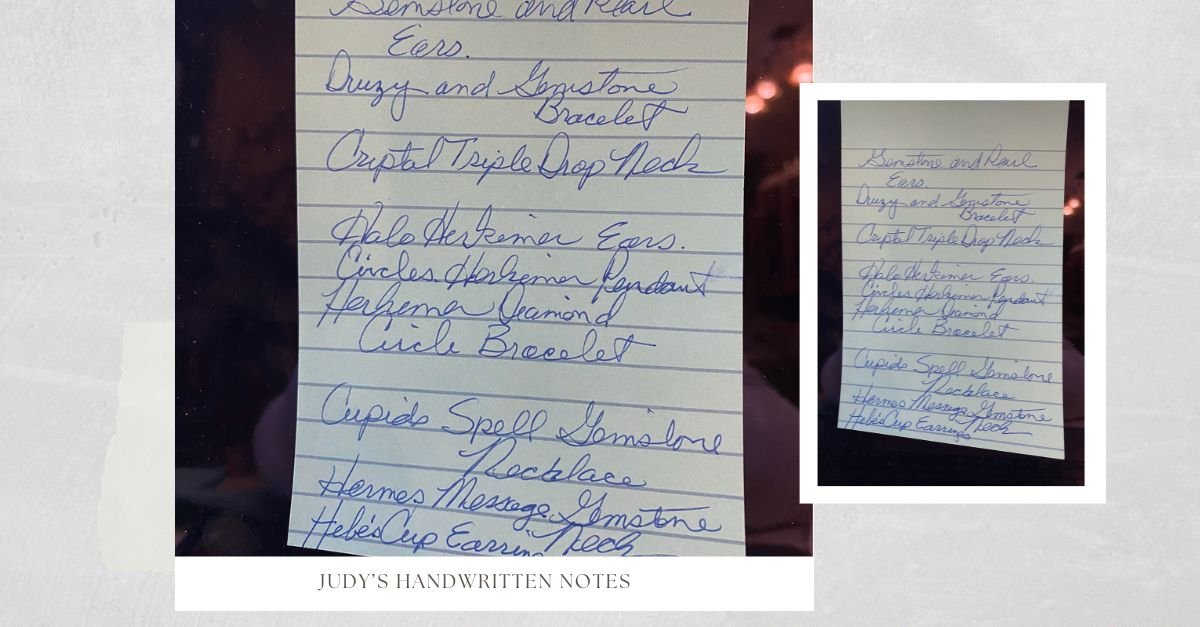 Gemstone and Pearl
Ears.
Druzy and Gemstone
Bracelet
Crystal Triple Drop Neck
Halo Herkimer Ears.
Circles Herkimer Pendant
Herkimer Diamond
Circle Bracelet
Cupids Spell Gemstone
Necklace
Hermes Message Gemstone
Hebe's Cup Earrin Neck
JUDY'S HANDWRITTEN NOTES
Gemstone and Pearl
Ears.
Druzy and Gemstone
Bracelet
Crystal Triple Drop Neck
Halo Herkimer Ears.
Circles Herkimer Pendant
Herkimer Diamond
Circle Bracelet
Cupids Spell Gemstone
Necklace
Hermes Message Gemstone
Hebe's Cup Earrings Neck